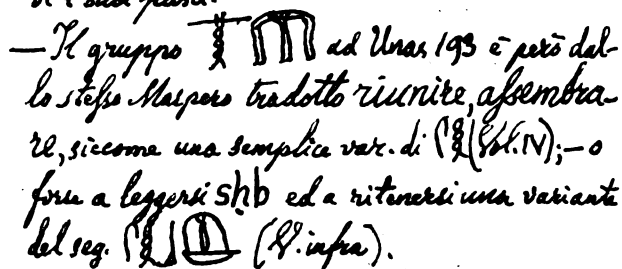 — Il gruppo ad Unas 193 è però dal-
lo stesso Maspero tradotto riunire, assembra-
re, siccome una semplice var. di (Vol. IV); — o
forse a leggersi sḥb ed a ritenersi una variante
del seg. (V. infra).